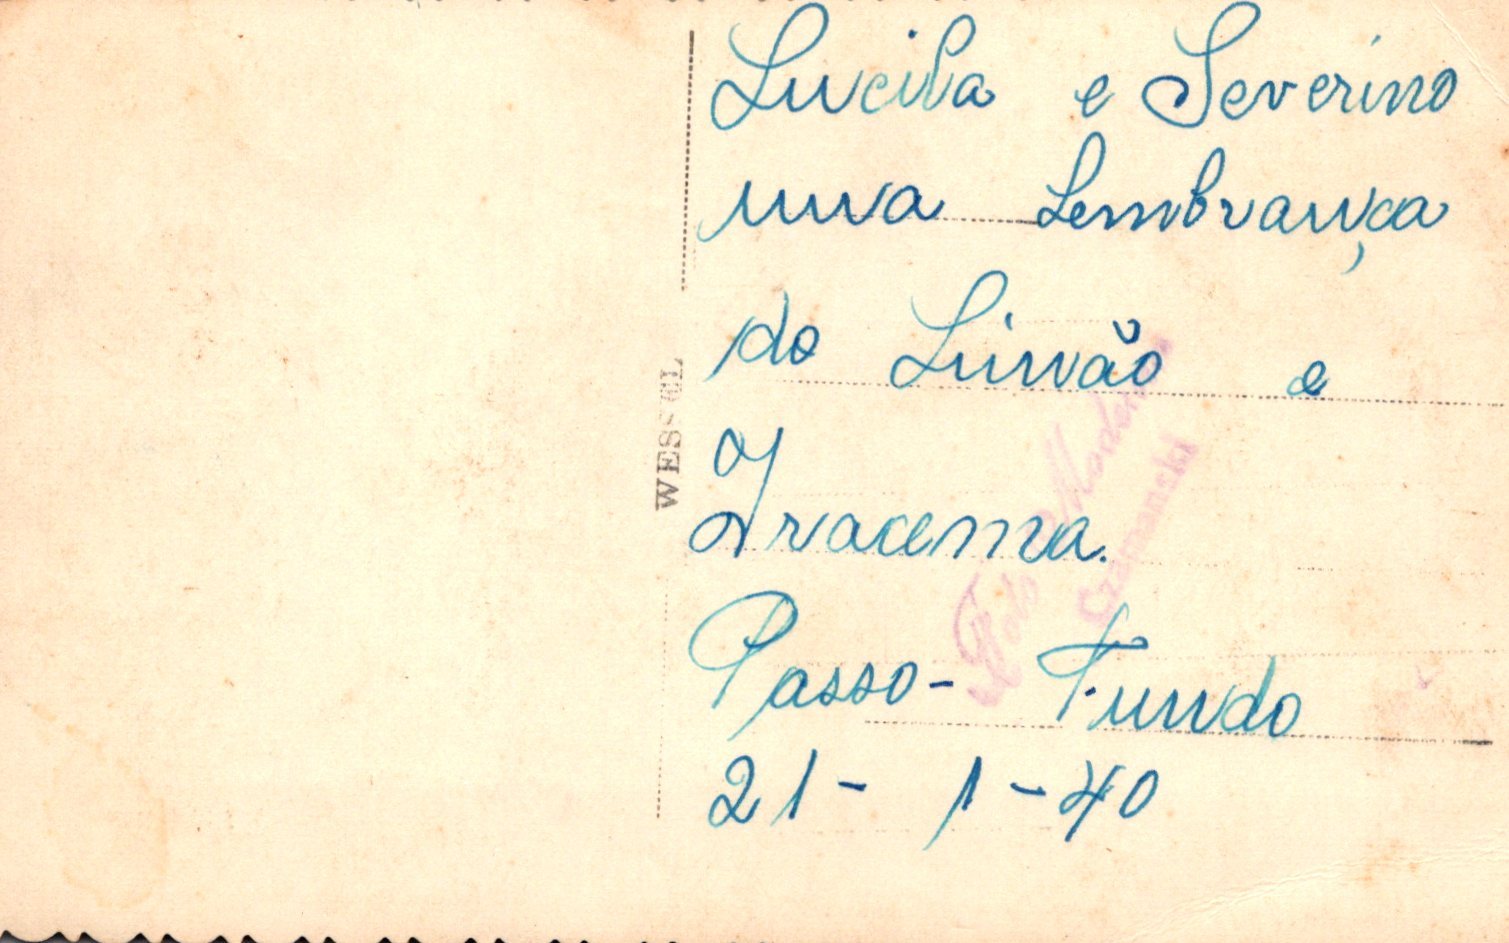 Lucila e Severino
uma Lembrança
do e
Iracema.
Passo-Fundo
21-1-40
WESSEL
Foto Moderna
Czamanski